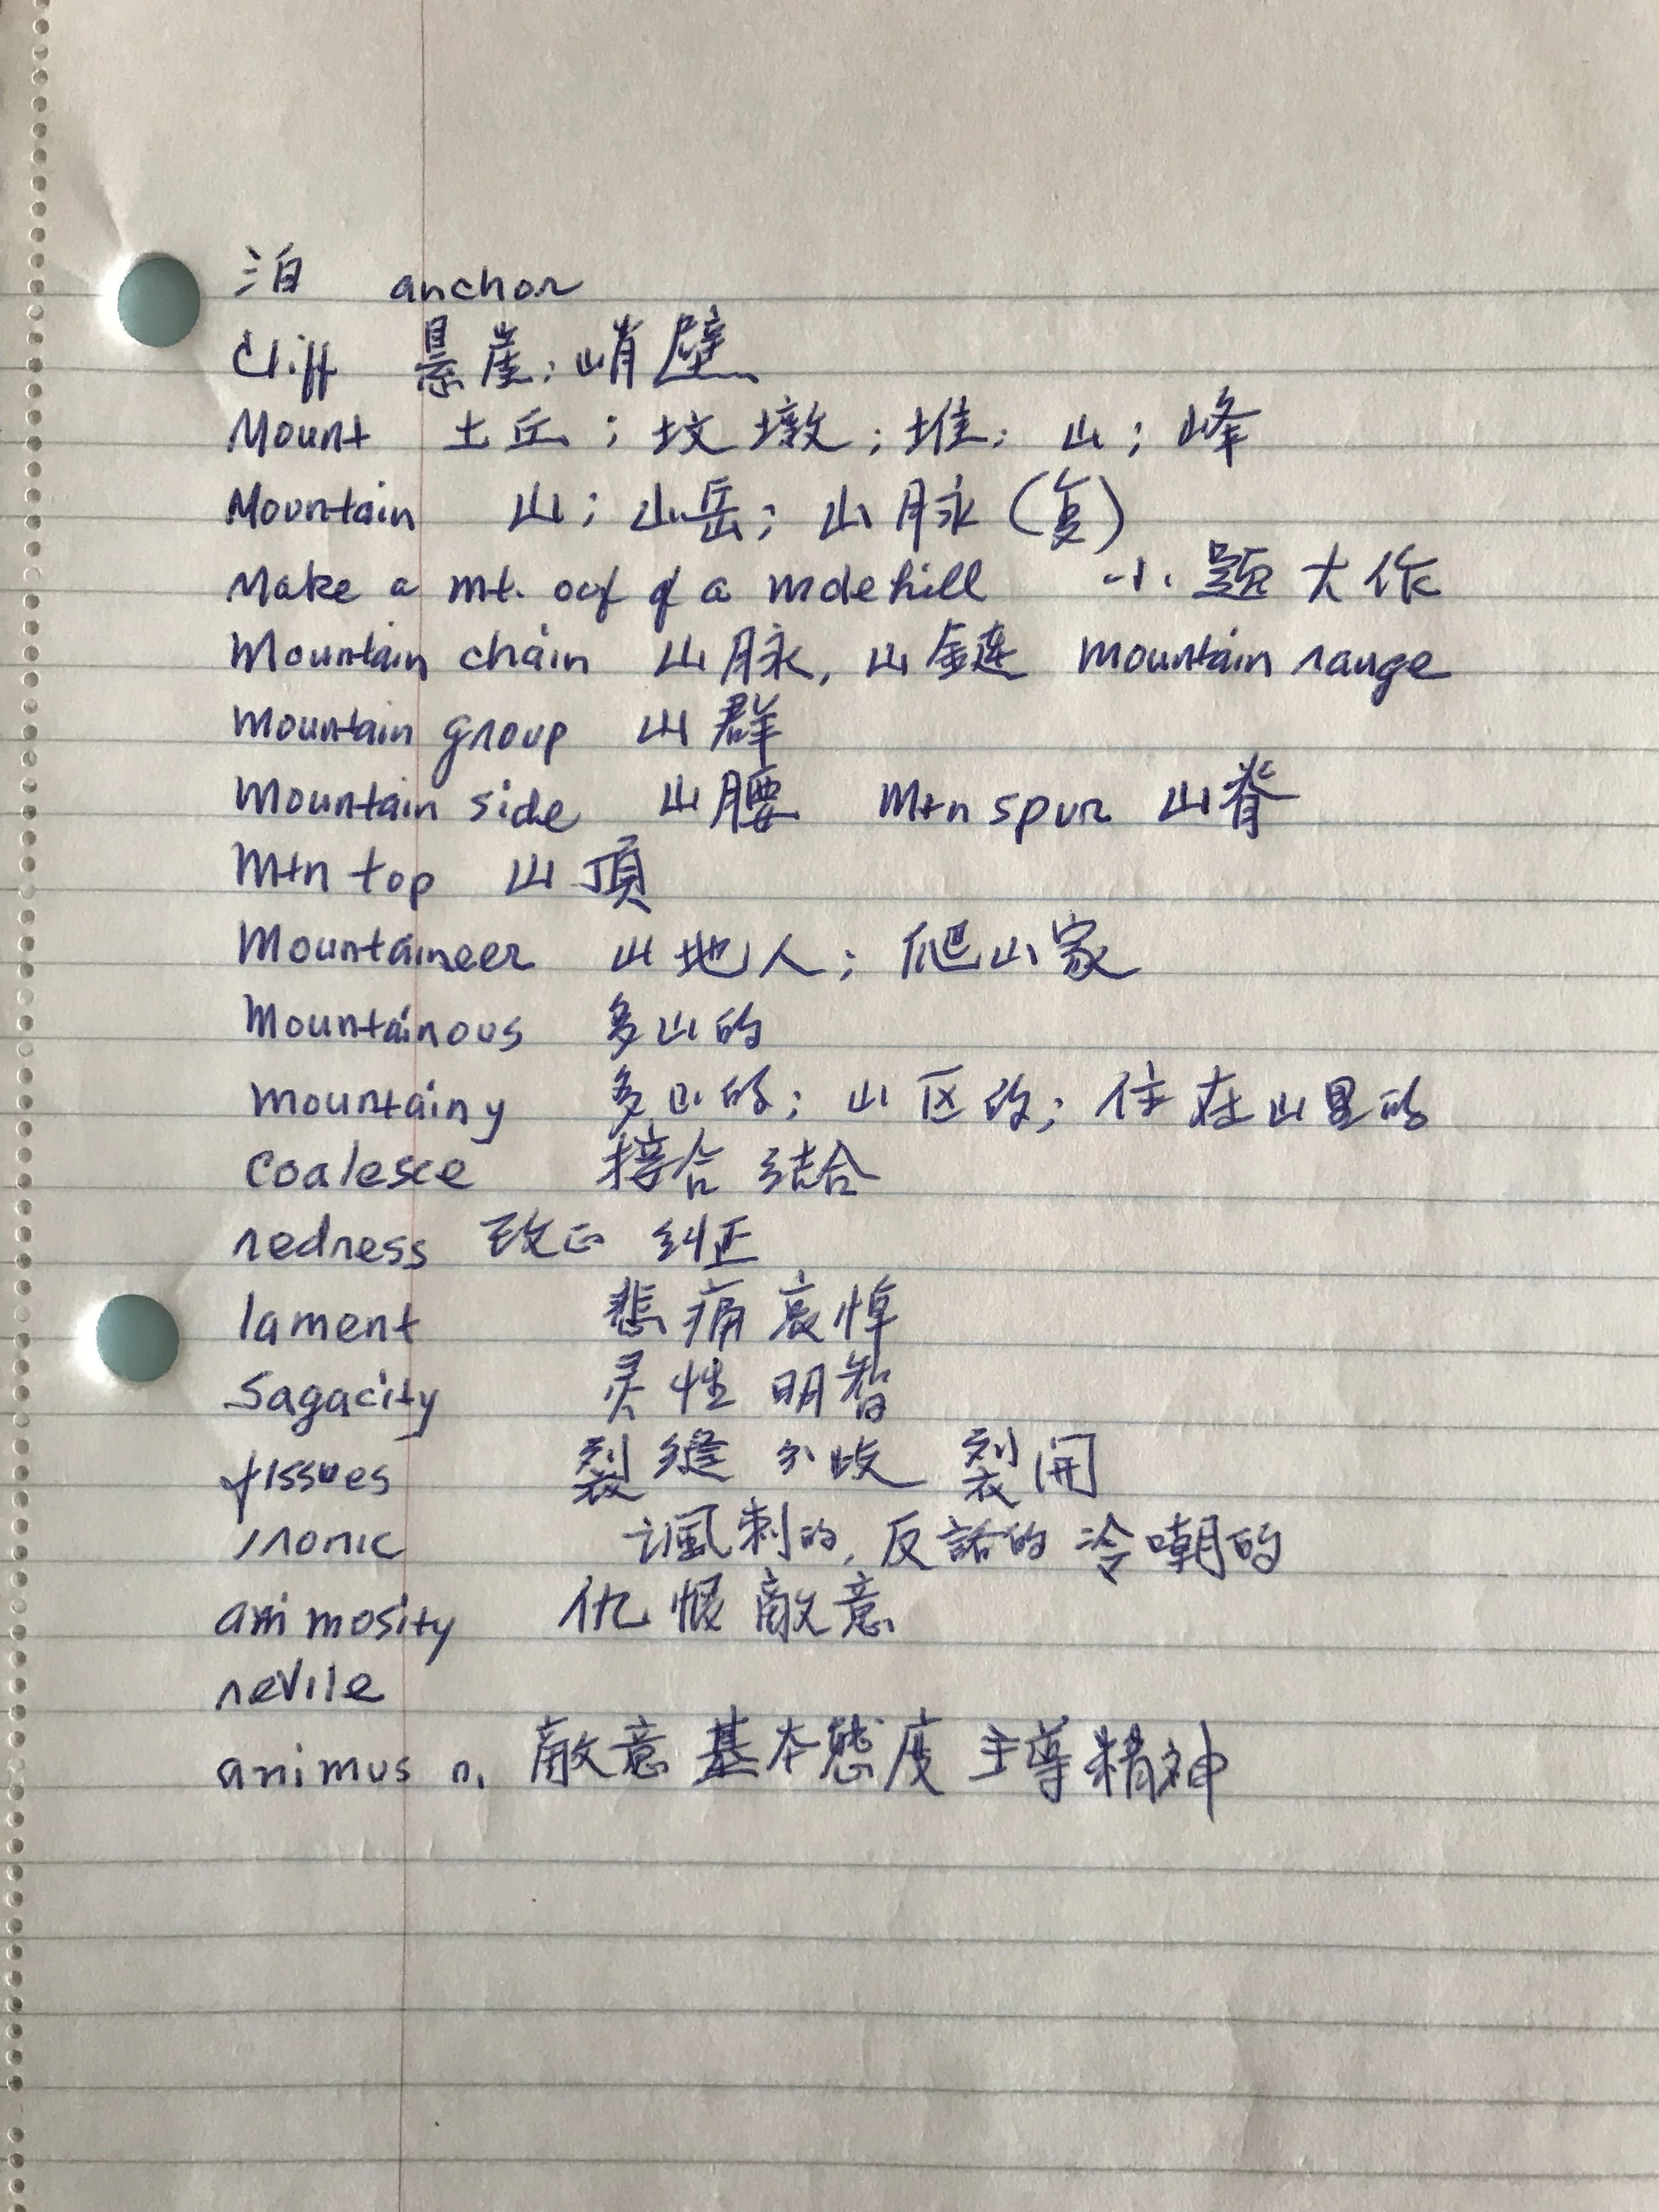 泊 anchor
Cliff 悬崖; 峭壁
Mount 土丘; 坟墩; 堆; 山; 峰
Mountain 山; 山岳; 山脉(复)
Make a mt. out of a molehill 小题大作
Mountain chain 山脉, 山链 mountain range
Mountain group 山群
Mountain side 山腰 Mtn spur 山脊
Mtn top 山頂
Mountaineer 山地人; 爬山家
Mountainous 多山的
mountainy 多山的; 山区的; 住在山里的
Coalesce 接合 结合
redress 改正 纠正
lament 悲痛 哀悼
Sagacity 灵性 明智
fissues 裂缝 分歧 裂開
ironic 讽刺的, 反話的 冷嘲的
animosity 仇恨 敵意
revile
animus n. 敵意 基本態度 主導精神